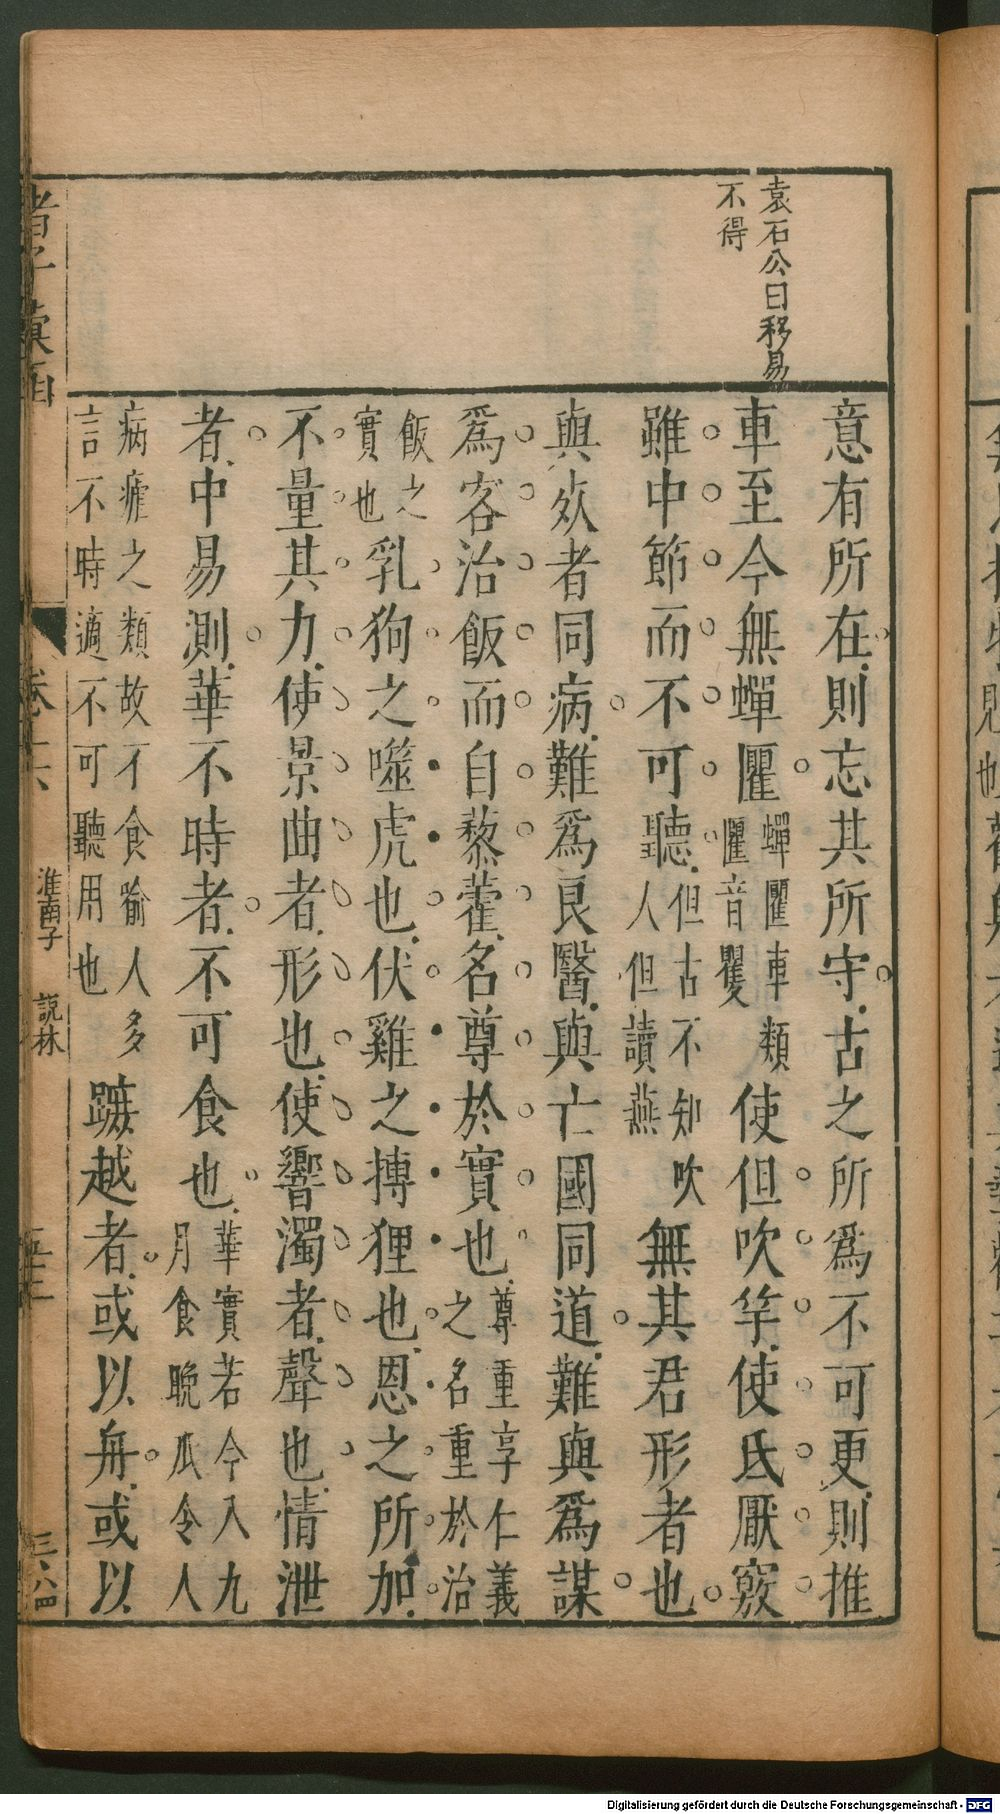 袁石公曰移易
不得
意有所在則忘其所守古之所爲不可更則推
車至今無蟬匷蟬匷車類匷音瞿使但吹竽使氏厭竅
雖中節而不可聽但古不知吹人但讀燕無其君形者也
與死者同病難爲良醫與亡國同道難與爲謀
爲客治飯而自藜藿名尊於實也尊重享仁義之名重於治
飯之實也乳狗之噬虎也伏雞之搏狸也恩之所加
不量其力使景曲者形也使響濁者聲也情泄
者中易測華不時者不可食也華實若今入九月食晚瓜令人
病瘧之類故不食喻人多言不時適不可聽用也蹠越者或以舟或以
諸子彙函
卷十六
淮南子
說林
五十三
三六四
Digitalisierung gefördert durch die Deutsche Forschungsgemeinschaft - DFG